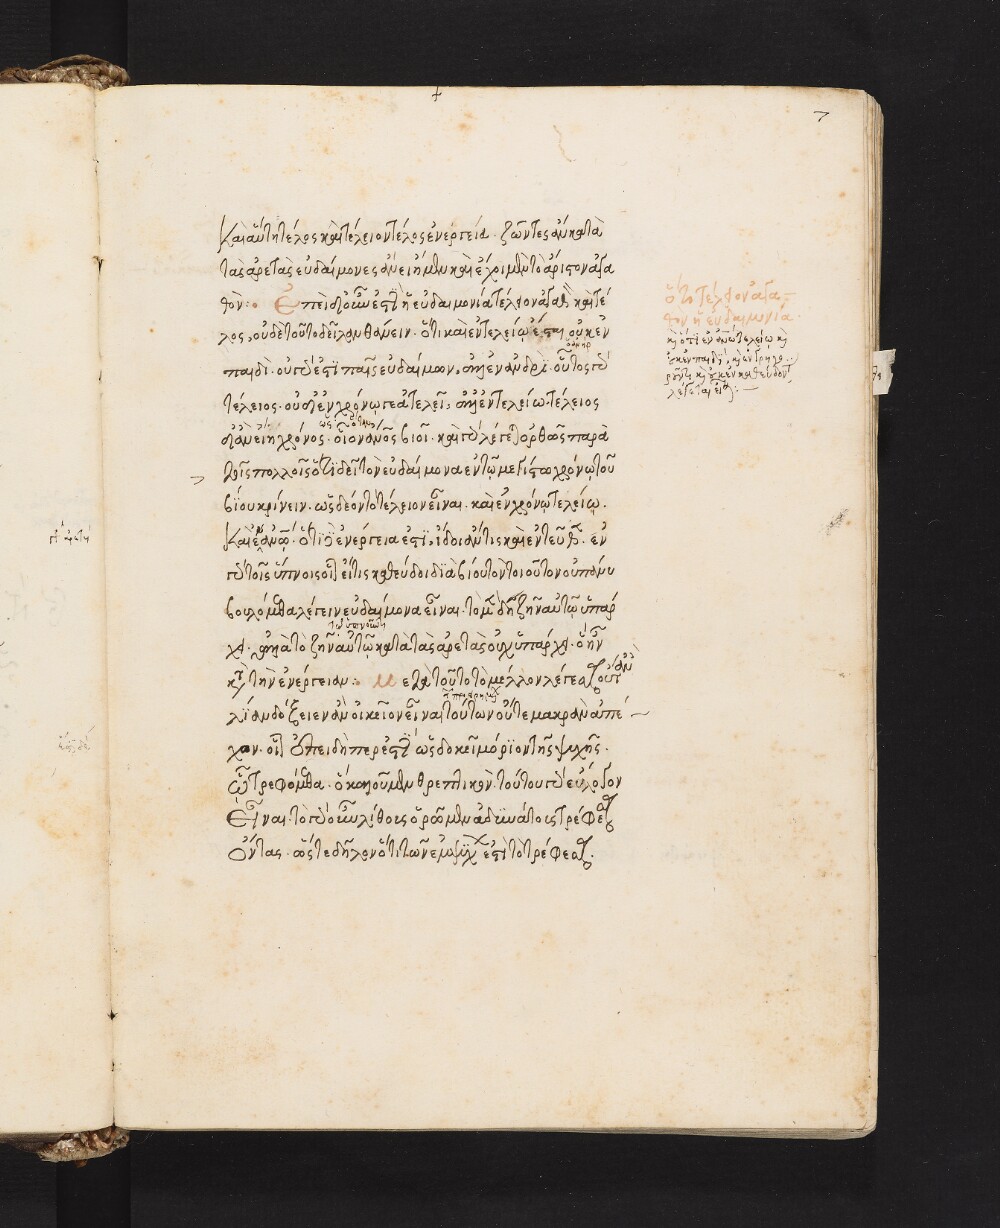 7
καὶ αὕτη τέλος καὶ τέλειον τέλος ἐνέργεια. ζῶντες ἂν κατὰ
τὰς ἀρετὰς εὐδαίμονες ἂν εἴημεν καὶ ἔχοιμεν τὸ ἄριστον ἀγα
θόν: Ἐπεὶ δ' οὖν ἐστὶν ἡ εὐδαιμονία τέλεον ἀγαθὸν καὶ τέ
λος, οὐδὲ τοῦτο δεῖ λανθάνειν. ὅτι καὶ ἐν τελείῳ ἔσται. οὐκ ἐν
παιδὶ. οὐ γάρ ἐστι παῖς εὐδαίμων, ἀλλ' ἐν ἀνδρί. οὗτος γὰρ
τέλειος. οὐδ' ἐν χρόνῳ γε ἀτελεῖ, ἀλλ' ἐν τελείῳ. τέλειος
δ' ἂν εἴη χρόνος. οἷον ἄνθρωπος βιοῖ. καὶ γὰρ λέγεται ὀρθῶς παρὰ
τοῖς πολλοῖς ὅτι δεῖ τὸν εὐδαίμονα ἐν τῷ μεγίστῳ χρόνῳ τοῦ
βίου κρίνειν. ὡς δέον τὸ τέλειον εἶναι. καὶ ἐν χρόνῳ τελείῳ.
καὶ ἐν ἀνθρώπῳ. ὅτι δ' ἐνέργειά ἐστιν, ἴδοι ἄν τις καὶ ἐντεῦθεν. ἐν
γὰρ τοῖς ὕπνοις οἷον εἴ τις καθεύδοι διὰ βίου τὸν τοιοῦτον οὐ πάνυ
βουλόμεθα λέγειν εὐδαίμονα εἶναι. τὸ μὲν γὰρ ζῆν αὐτῷ ὑπάρ
χει. ἀλλὰ τὸ ζῆν αὐτῷ κατὰ τὰς ἀρετὰς οὐχ ὑπάρχει. ὃ ἦν
κατὰ τὴν ἐνέργειαν: Μετὰ τοῦτο τὸ μέλλον λέγεσθαι οὔτ' ἂν
λίαν δόξειεν ἂν οἰκεῖον εἶναι τούτων οὔτε μακρὰν ἀπέ
χον. οἷον ἐπειδήπερ ἐστὶν ὡς δοκεῖ μόριόν τι τῆς ψυχῆς.
ᾧ τρεφόμεθα. ὃ καλοῦμεν θρεπτικόν. τοῦτο γὰρ εὔλογον
εἶναι. τοὺς γοῦν λίθους ὁρῶμεν ἀδυνάτους τρέφεσθαι
ὄντας. ὥστε δῆλον ὅτι τῶν ἐμψύχων ἐστὶ τὸ τρέφεσθαι.
ὅτι τέλεον ἀγα
θὸν ἡ εὐδαιμονία.
καὶ ὅτι ἐν ἀνθρώπῳ τελείῳ καὶ
οὐκ ἐν παιδὶ, καὶ ἐν ἐγρηγο
ρότι καὶ οὐκ ἐν καθεύδοντι